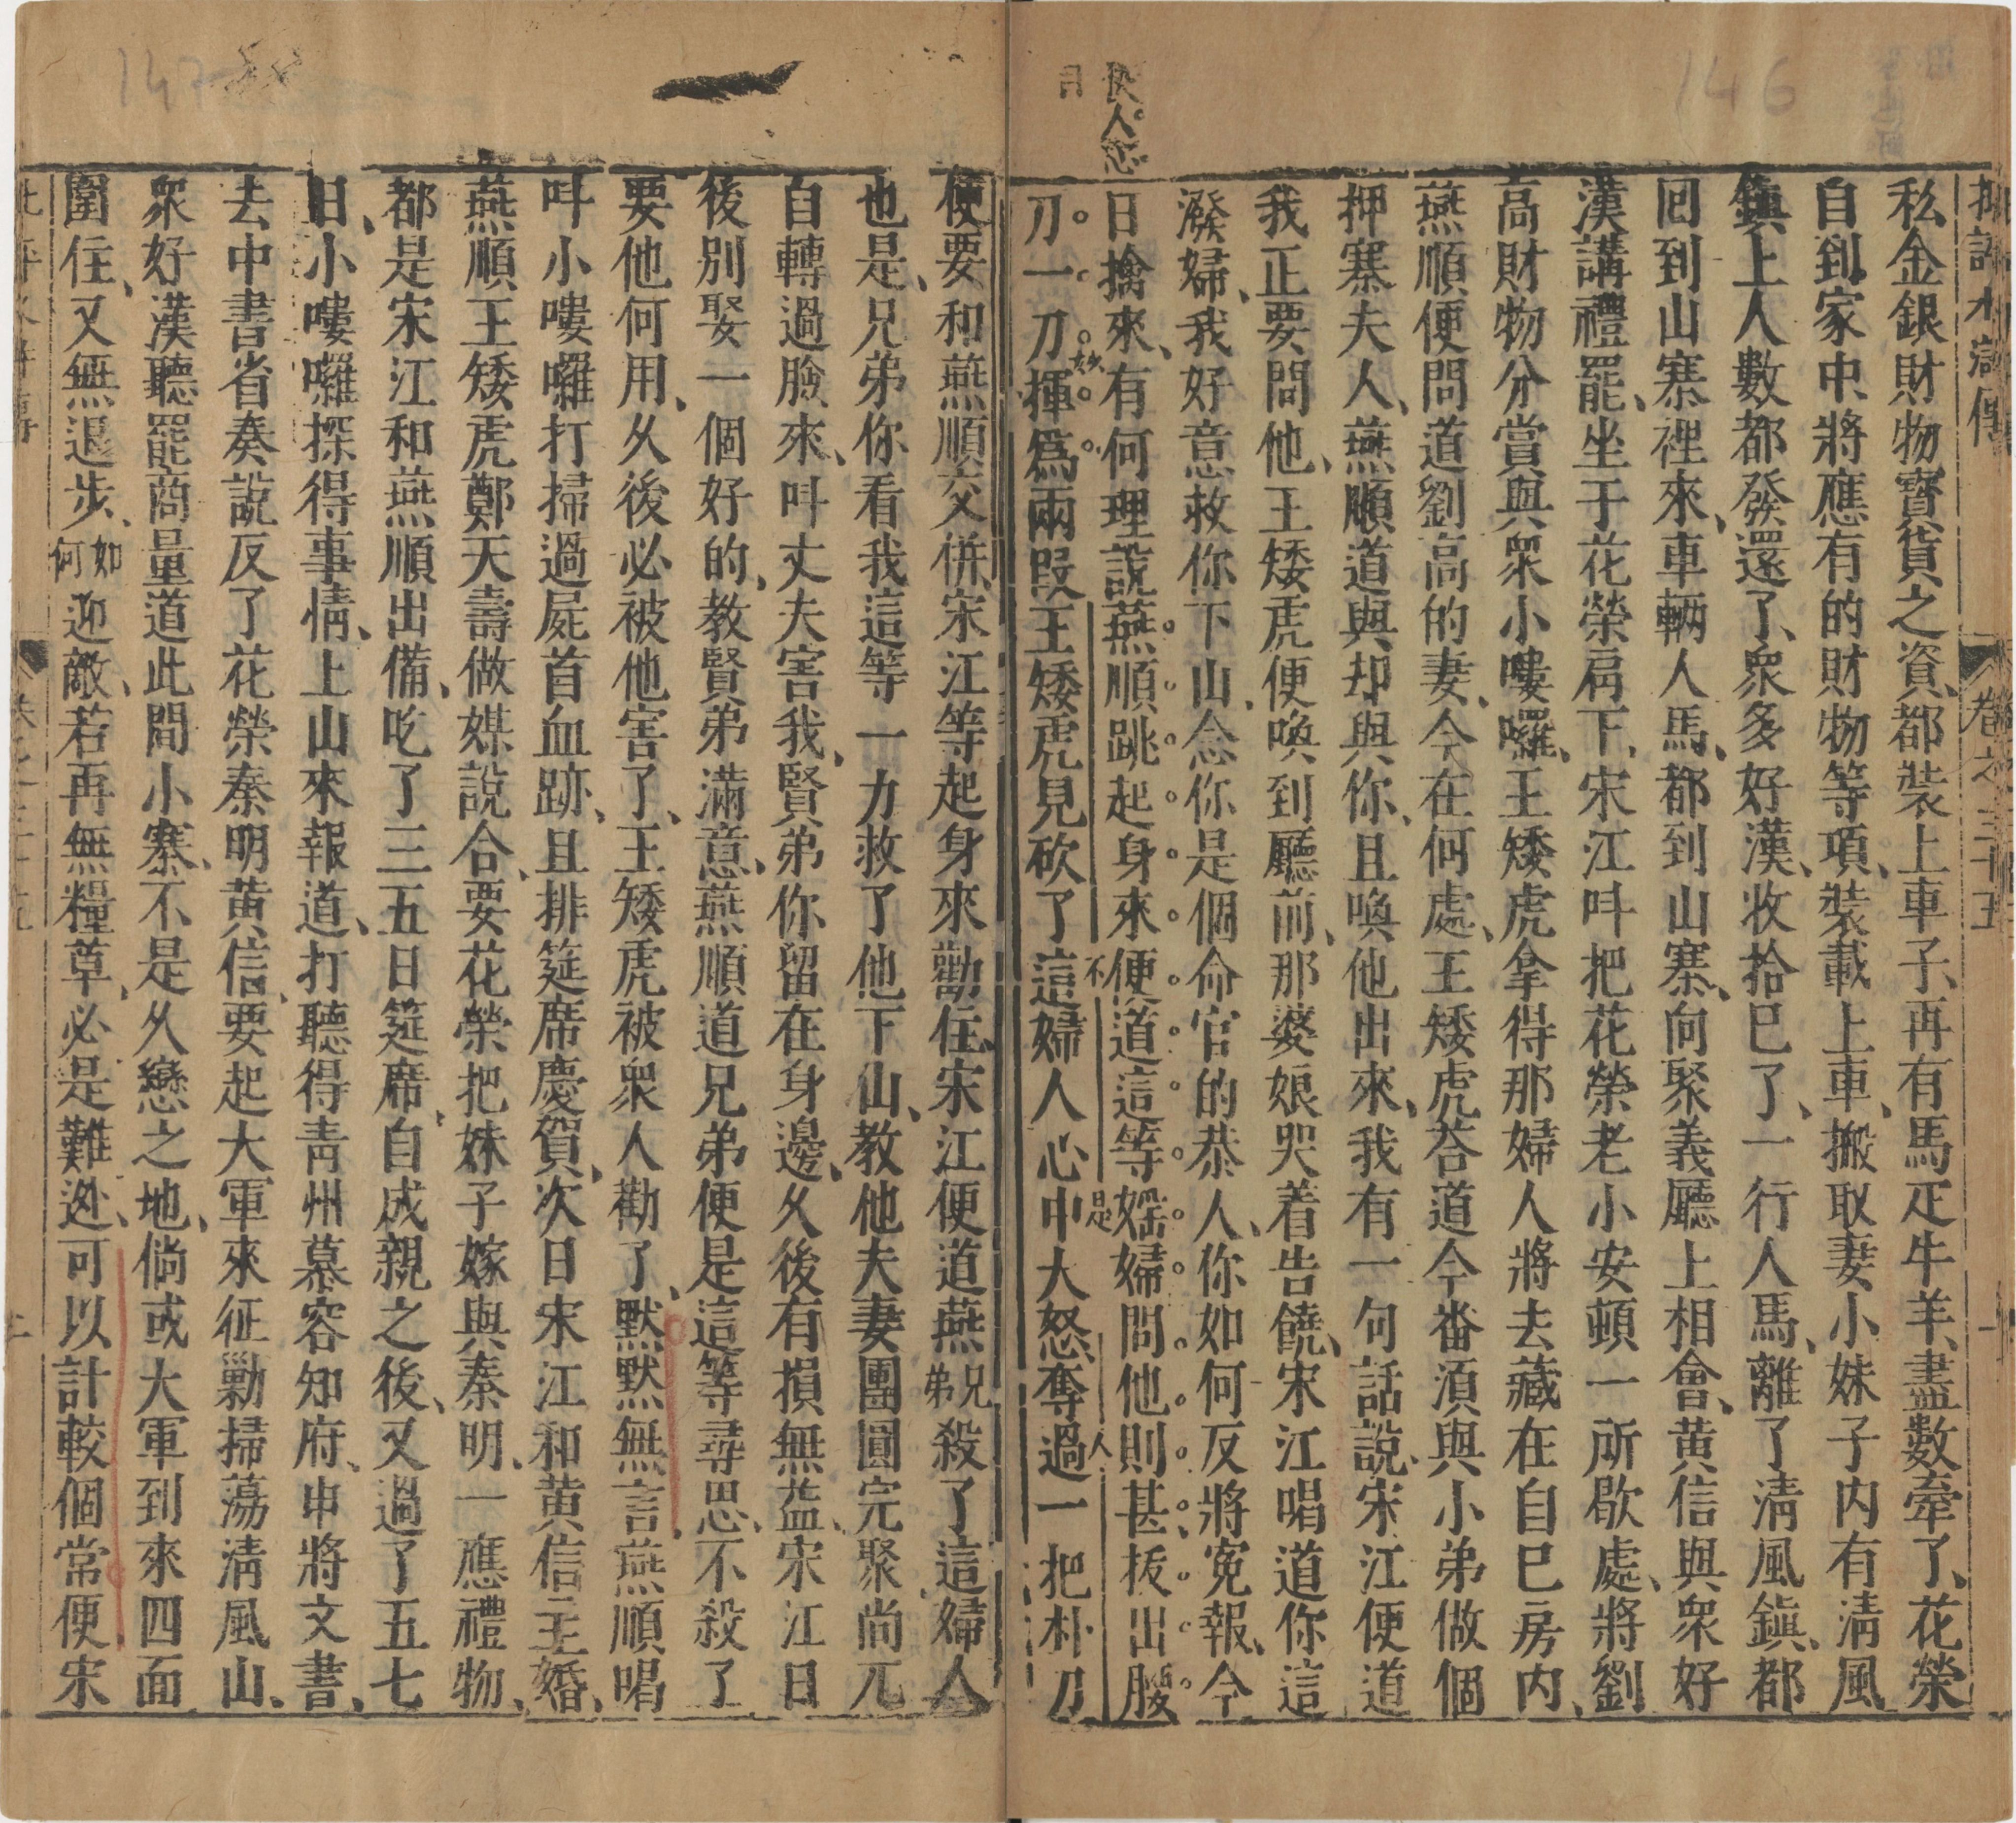 146
快人恣
目
批評水滸傳
卷之三十五
一
私金銀財物寶貨之資、都裝上車子、再有馬疋牛羊、盡數牽了、花榮
自到家中、將應有的財物等項、裝載上車、搬取妻小妹子、內有清風
鎮上人數、都發還了、衆多好漢、收拾已了、一行人馬、離了清風鎮、都
回到山寨裡來、車輛人馬、都到山寨、向聚義廳上相會、黃信與衆好
漢講禮罷、坐于花榮肩下、宋江呌把花榮老小安頓一所歇處、將劉
高財物分賞與衆小嘍囉、王矮虎拿得那婦人、將去藏在自已房內、
燕順便問道、劉高的妻、今在何處、王矮虎荅道、今番須與小弟做個
押寨夫人、燕順道、與却與你、且喚他出來、我有一句話說、宋江便道
我正要問他、王矮虎便喚到廳前、那婆娘哭着告饒、宋江喝道、你這
潑婦、我好意救你下山、念你是個命官的恭人、你如何反將寃報、今
日擒來、有何理說、燕順跳起身來、便道、這等婬婦、問他則甚、拔出腰
刀、一刀揮爲兩叚、王矮虎見砍了這婦人、心中大怒、奪過一把朴刀
妙
不
是
人
便要和燕順交併、宋江等起身來勸住、宋江便道、燕兄弟殺了這婦人
也是、兄弟你看我這等一力救了他下山、教他夫妻團圓完聚、尚兀
自轉過臉來、呌丈夫害我、賢弟你留在身邊、久後有損無益、宋江日
後別娶一個好的、教賢弟滿意、燕順道、兄弟便是這等尋思、不殺了
要他何用、久後必被他害了、王矮虎被衆人勸了、默默無言、燕順喝
呌小嘍囉打掃過屍首血跡、且排筵席慶賀、次日宋江和黃信主婚、
燕順王矮虎鄭天壽做媒說合、要花榮把妹子嫁與秦明、一應禮物、
都是宋江和燕順出備、吃了三五日筵席、自成親之後、又過了五七
日、小嘍囉探得事情、上山來報道、打聽得青州慕容知府、申將文書、
去中書省奏說、反了花榮秦明黃信、要起大軍來征勦、掃蕩清風山、
衆好漢聽罷、商量道、此間小寨、不是久戀之地、倘或大軍到來、四面
圍住、又無退步、如何迎敵、若再無糧草、必是難逃、可以計較個常便、宋
147